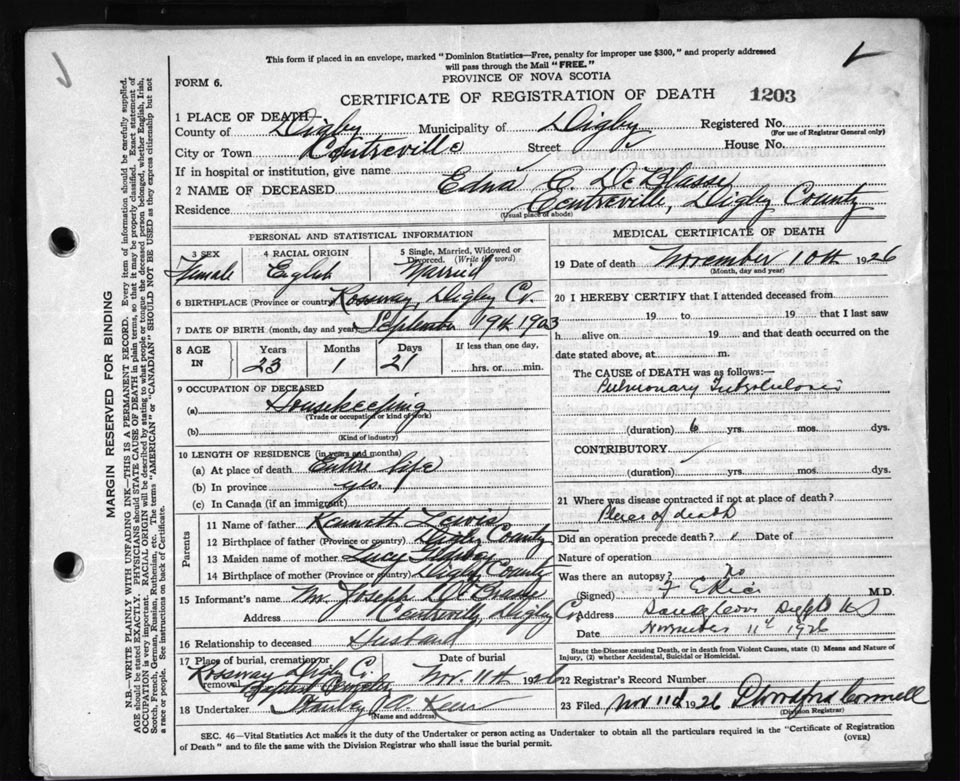 This form if placed in an envelope, marked "Dominion Statistics—Free, penalty for improper use $300," and properly addressed
will pass through the Mail "FREE."
FORM 6.
PROVINCE OF NOVA SCOTIA
CERTIFICATE OF REGISTRATION OF DEATH 1203
MARGIN RESERVED FOR BINDING
N.B.—WRITE PLAINLY WITH UNFADING INK—THIS IS A PERMANENT RECORD. Every item of information should be carefully supplied.
AGE should be stated EXACTLY. PHYSICIANS should STATE CAUSE OF DEATH in plain terms, so that it may be properly classified. Exact statement of
OCCUPATION is very important. RACIAL ORIGIN will be described by stating to what people or tongue the deceased person belonged, whether English, Irish,
Scotch, French, German, Russian, Ruthenian, etc. The terms "AMERICAN" or "CANADIAN" SHOULD NOT BE USED as they express citizenship but not
a race or people. See instructions on back of Certificate.
1 PLACE OF DEATH—
County of Digby Municipality of Digby Registered No.
(For use of Registrar General only)
City or Town Centreville Street House No.
If in hospital or institution, give name
2 NAME OF DECEASED Edna E.
Residence Centreville, Digby County
(Usual place of abode)
PERSONAL AND STATISTICAL INFORMATION
3 SEX 4 RACIAL ORIGIN 5 Single, Married, Widowed or
Divorced. (Write the word)
Female English Married
6 BIRTHPLACE (Province or country) Rossway, Digby Co.
7 DATE OF BIRTH (month, day and year) September 19th 1903
8 AGE IN Years Months Days If less than one day,
23 1 21 hrs. or min.
9 OCCUPATION OF DECEASED
(a) Housekeeping
(Trade or occupation or kind of work)
(b)
(Kind of industry)
10 LENGTH OF RESIDENCE (in years and months)
(a) At place of death Entire life
(b) In province yes.
(c) In Canada (if an immigrant)
Parents
11 Name of father Kenneth Lewis
12 Birthplace of father (Province or country) Digby County
13 Maiden name of mother Lucy
14 Birthplace of mother (Province or country) Digby County
15 Informant's name Joseph
Address Centreville, Digby Co.
16 Relationship to deceased Husband
17 Place of burial, cremation or removal Date of burial
Rossway Digby C. Nov. 11th 1926
Baptist
18 Undertaker Stanley A.
(Name and address)
MEDICAL CERTIFICATE OF DEATH
19 Date of death November 10th 1926
(Month, day and year)
20 I HEREBY CERTIFY that I attended deceased from
19 to 19 that I last saw
h alive on 19 and that death occurred on the
date stated above, at m.
The CAUSE OF DEATH was as follows:—
Pulmonary Tuberculosis
(duration) 6 yrs. mos. dys.
CONTRIBUTORY
(duration) yrs. mos. dys.
21 Where was disease contracted if not at place of death?
Place of death
Did an operation precede death? Date of
Nature of operation
Was there an autopsy? no
(Signed) F E Rice M.D.
Address Sandy Cove
Date November 11th 1926
State the Disease causing Death, or in death from Violent Causes, state (1) Means and Nature of
Injury, (2) whether Accidental, Suicidal or Homicidal.
22 Registrar's Record Number
23 Filed Nov 11th 1926
(Division Registrar)
SEC. 46—Vital Statistics Act makes it the duty of the Undertaker or person acting as Undertaker to obtain all the particulars required in the "Certificate of Registration
of Death" and to file the same with the Division Registrar who shall issue the burial permit.
(OVER)